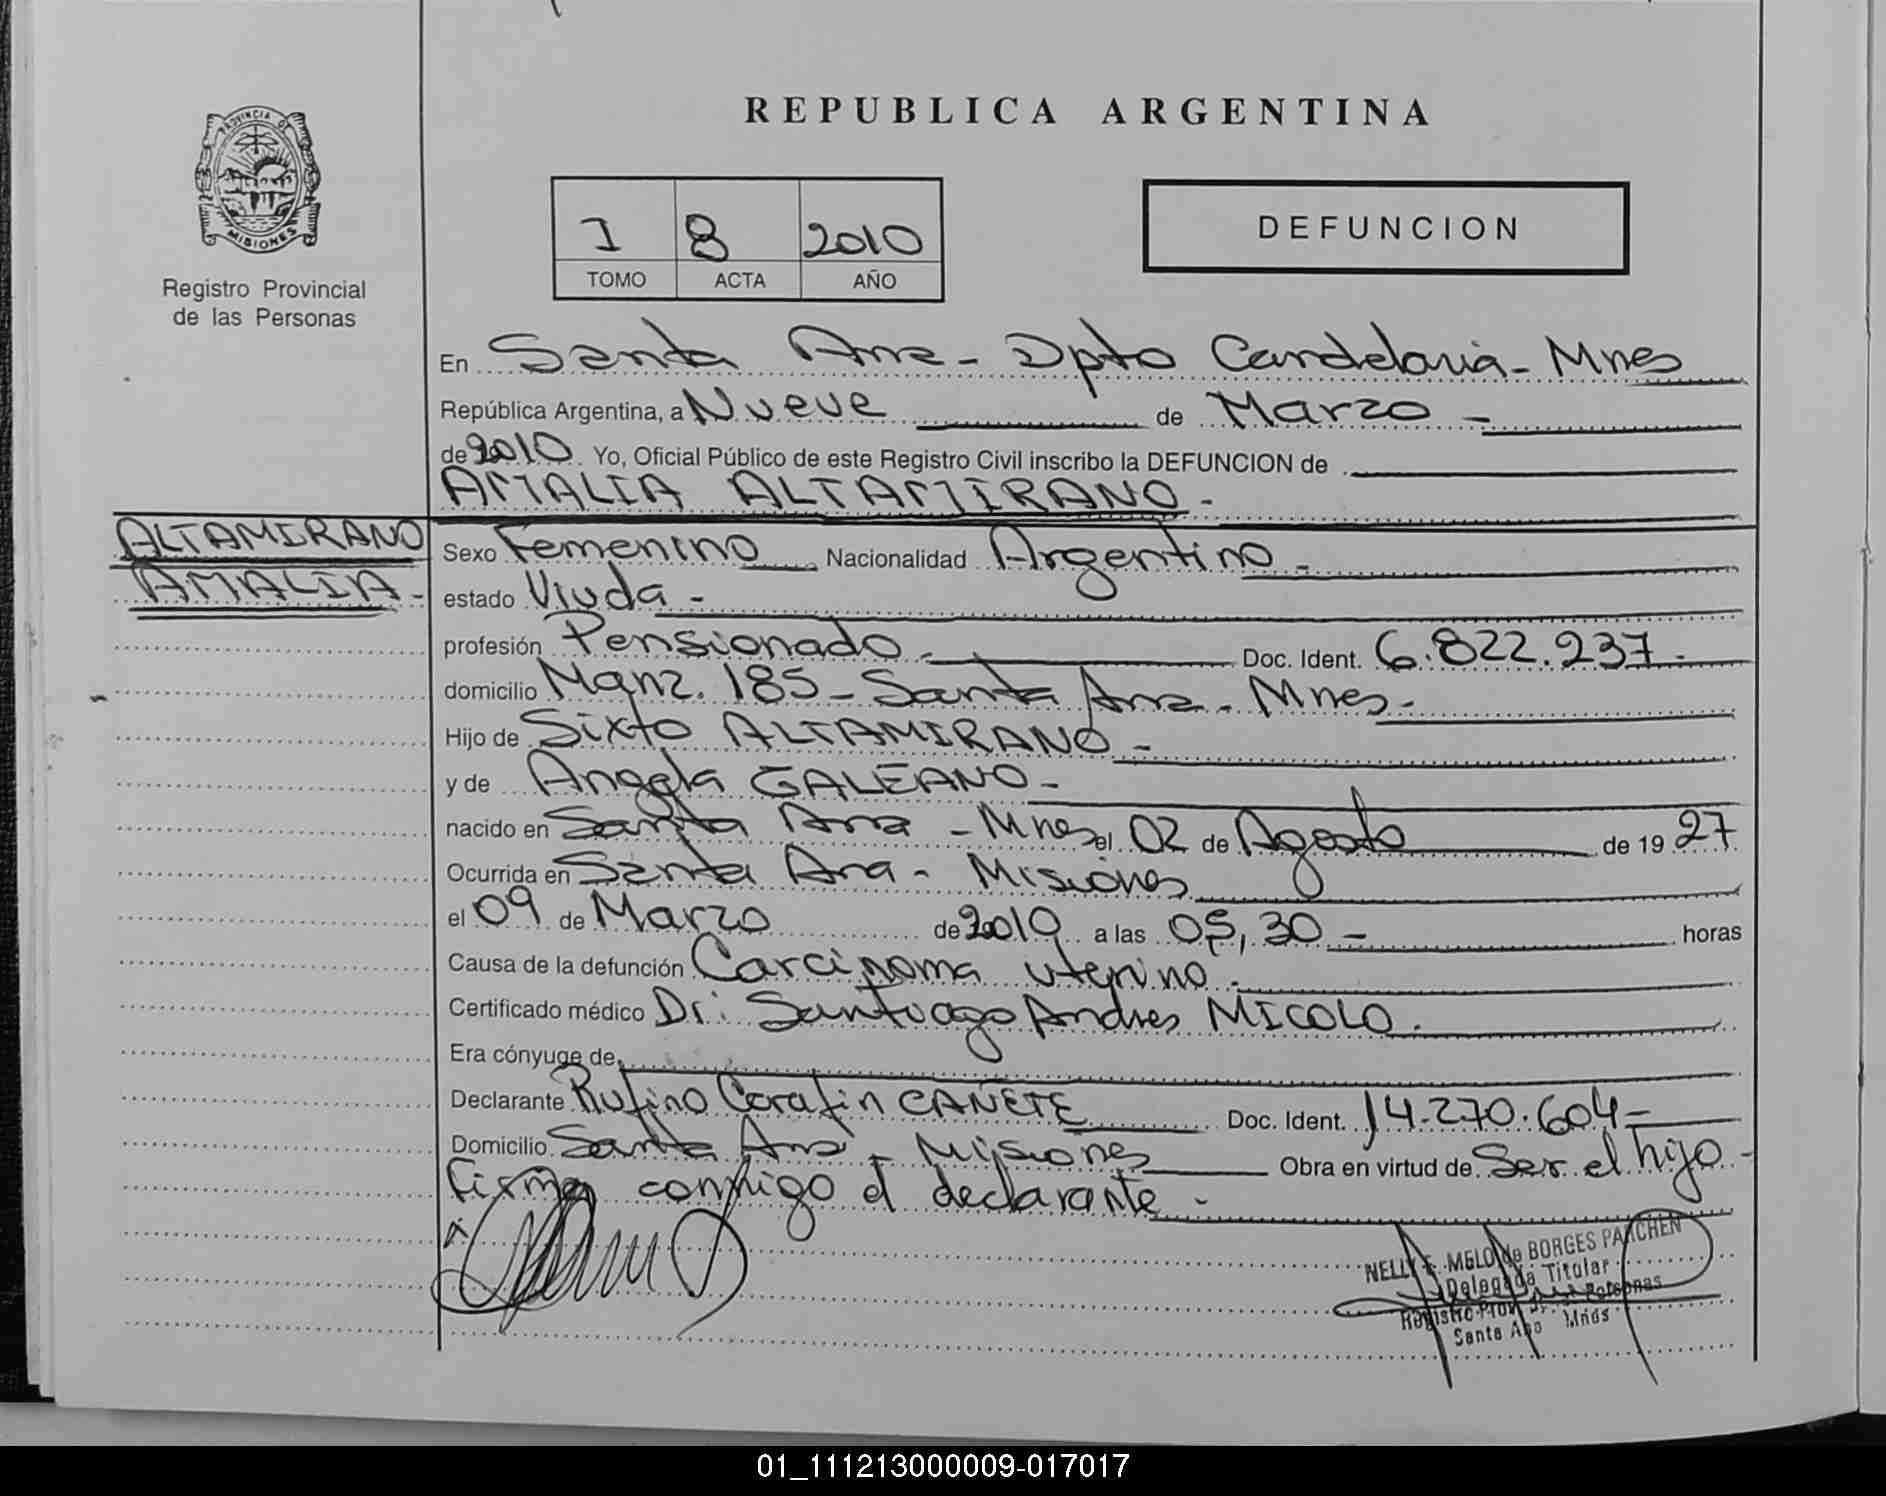 REPUBLICA ARGENTINA
PROVINCIA DE
MISIONES
Registro Provincial
de las Personas
I 8 2010
TOMO ACTA AÑO
DEFUNCION
En Santa Ana - Dpto Candelaria - Mnes
República Argentina, a Nueve de Marzo -
de 2010 Yo, Oficial Público de este Registro Civil inscribo la DEFUNCION de
AMALIA ALTAMIRANO -
ALTAMIRANO
AMALIA -
Sexo Femenino Nacionalidad Argentino -
estado Viuda -
profesión Pensionado - Doc. Ident. 6.822.237 -
domicilio Manz. 185 - Santa Ana - Mnes -
Hijo de Sixto ALTAMIRANO -
y de Angela GALEANO -
nacido en Santa Ana - Mnes el 02 de Agosto de 1927
Ocurrida en Santa Ana - Misiones
el 09 de Marzo de 2010 a las 05,30 - horas
Causa de la defunción Carcinoma uterino -
Certificado médico Dr: Santiago Andres MICOLO.
Era cónyuge de
Declarante Rufino Cerafin CAÑETE Doc. Ident. 14.270.604 -
Domicilio Santa Ana - Misiones Obra en virtud de Ser el hijo -
Firma conmigo el declarante -
NELLY E. MELO de BORGES PARCHEN
Delegada Titular
Registro Prov. de las Personas
Santa Ana Mnes
01_111213000009-017017